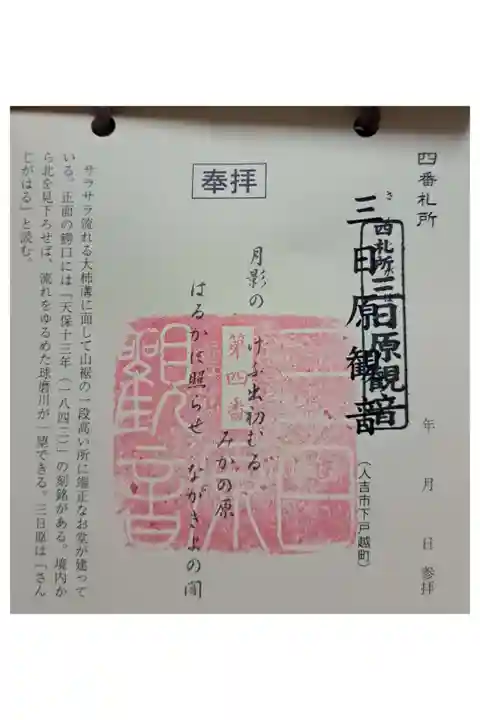 四番札所
三日原観音
西札所
三日原觀音
(人吉市下戸越町)
年 月 日 参拝
奉拝
月影の けふ出初むる みかの原
はるかに照らせ ながきよの闇
第四番
三日原
觀音
サラサラ流れる大柿溝に面して山裾の一段高い所に端正なお堂が建って
いる。正面の鰐口には「天保十三年(一八四二)」の刻銘がある。境内か
ら北を見下ろせば、流れをゆるめた球磨川が一望できる。三日原は「さん
じがはる」と読む。